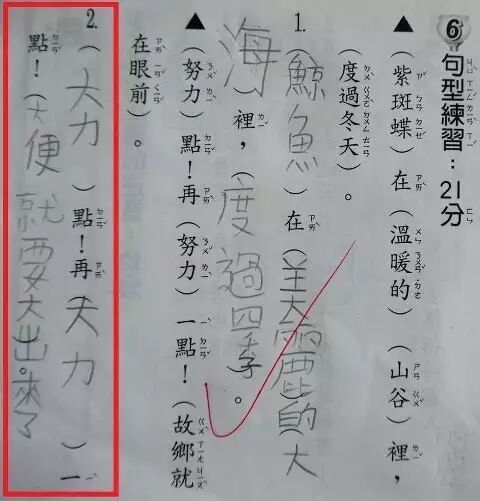 6 句型練習：21分
▲（紫斑蝶）在（溫暖的）（山谷）裡，
（度過冬天）。
1.（鯨魚）在（美麗的）（大
海）裡，（度過四季）。
▲（努力）點！再（努力）一點！（故鄉就
在眼前）。
2.（大力）點！再（大力）一
點！（大便就要大出來了。